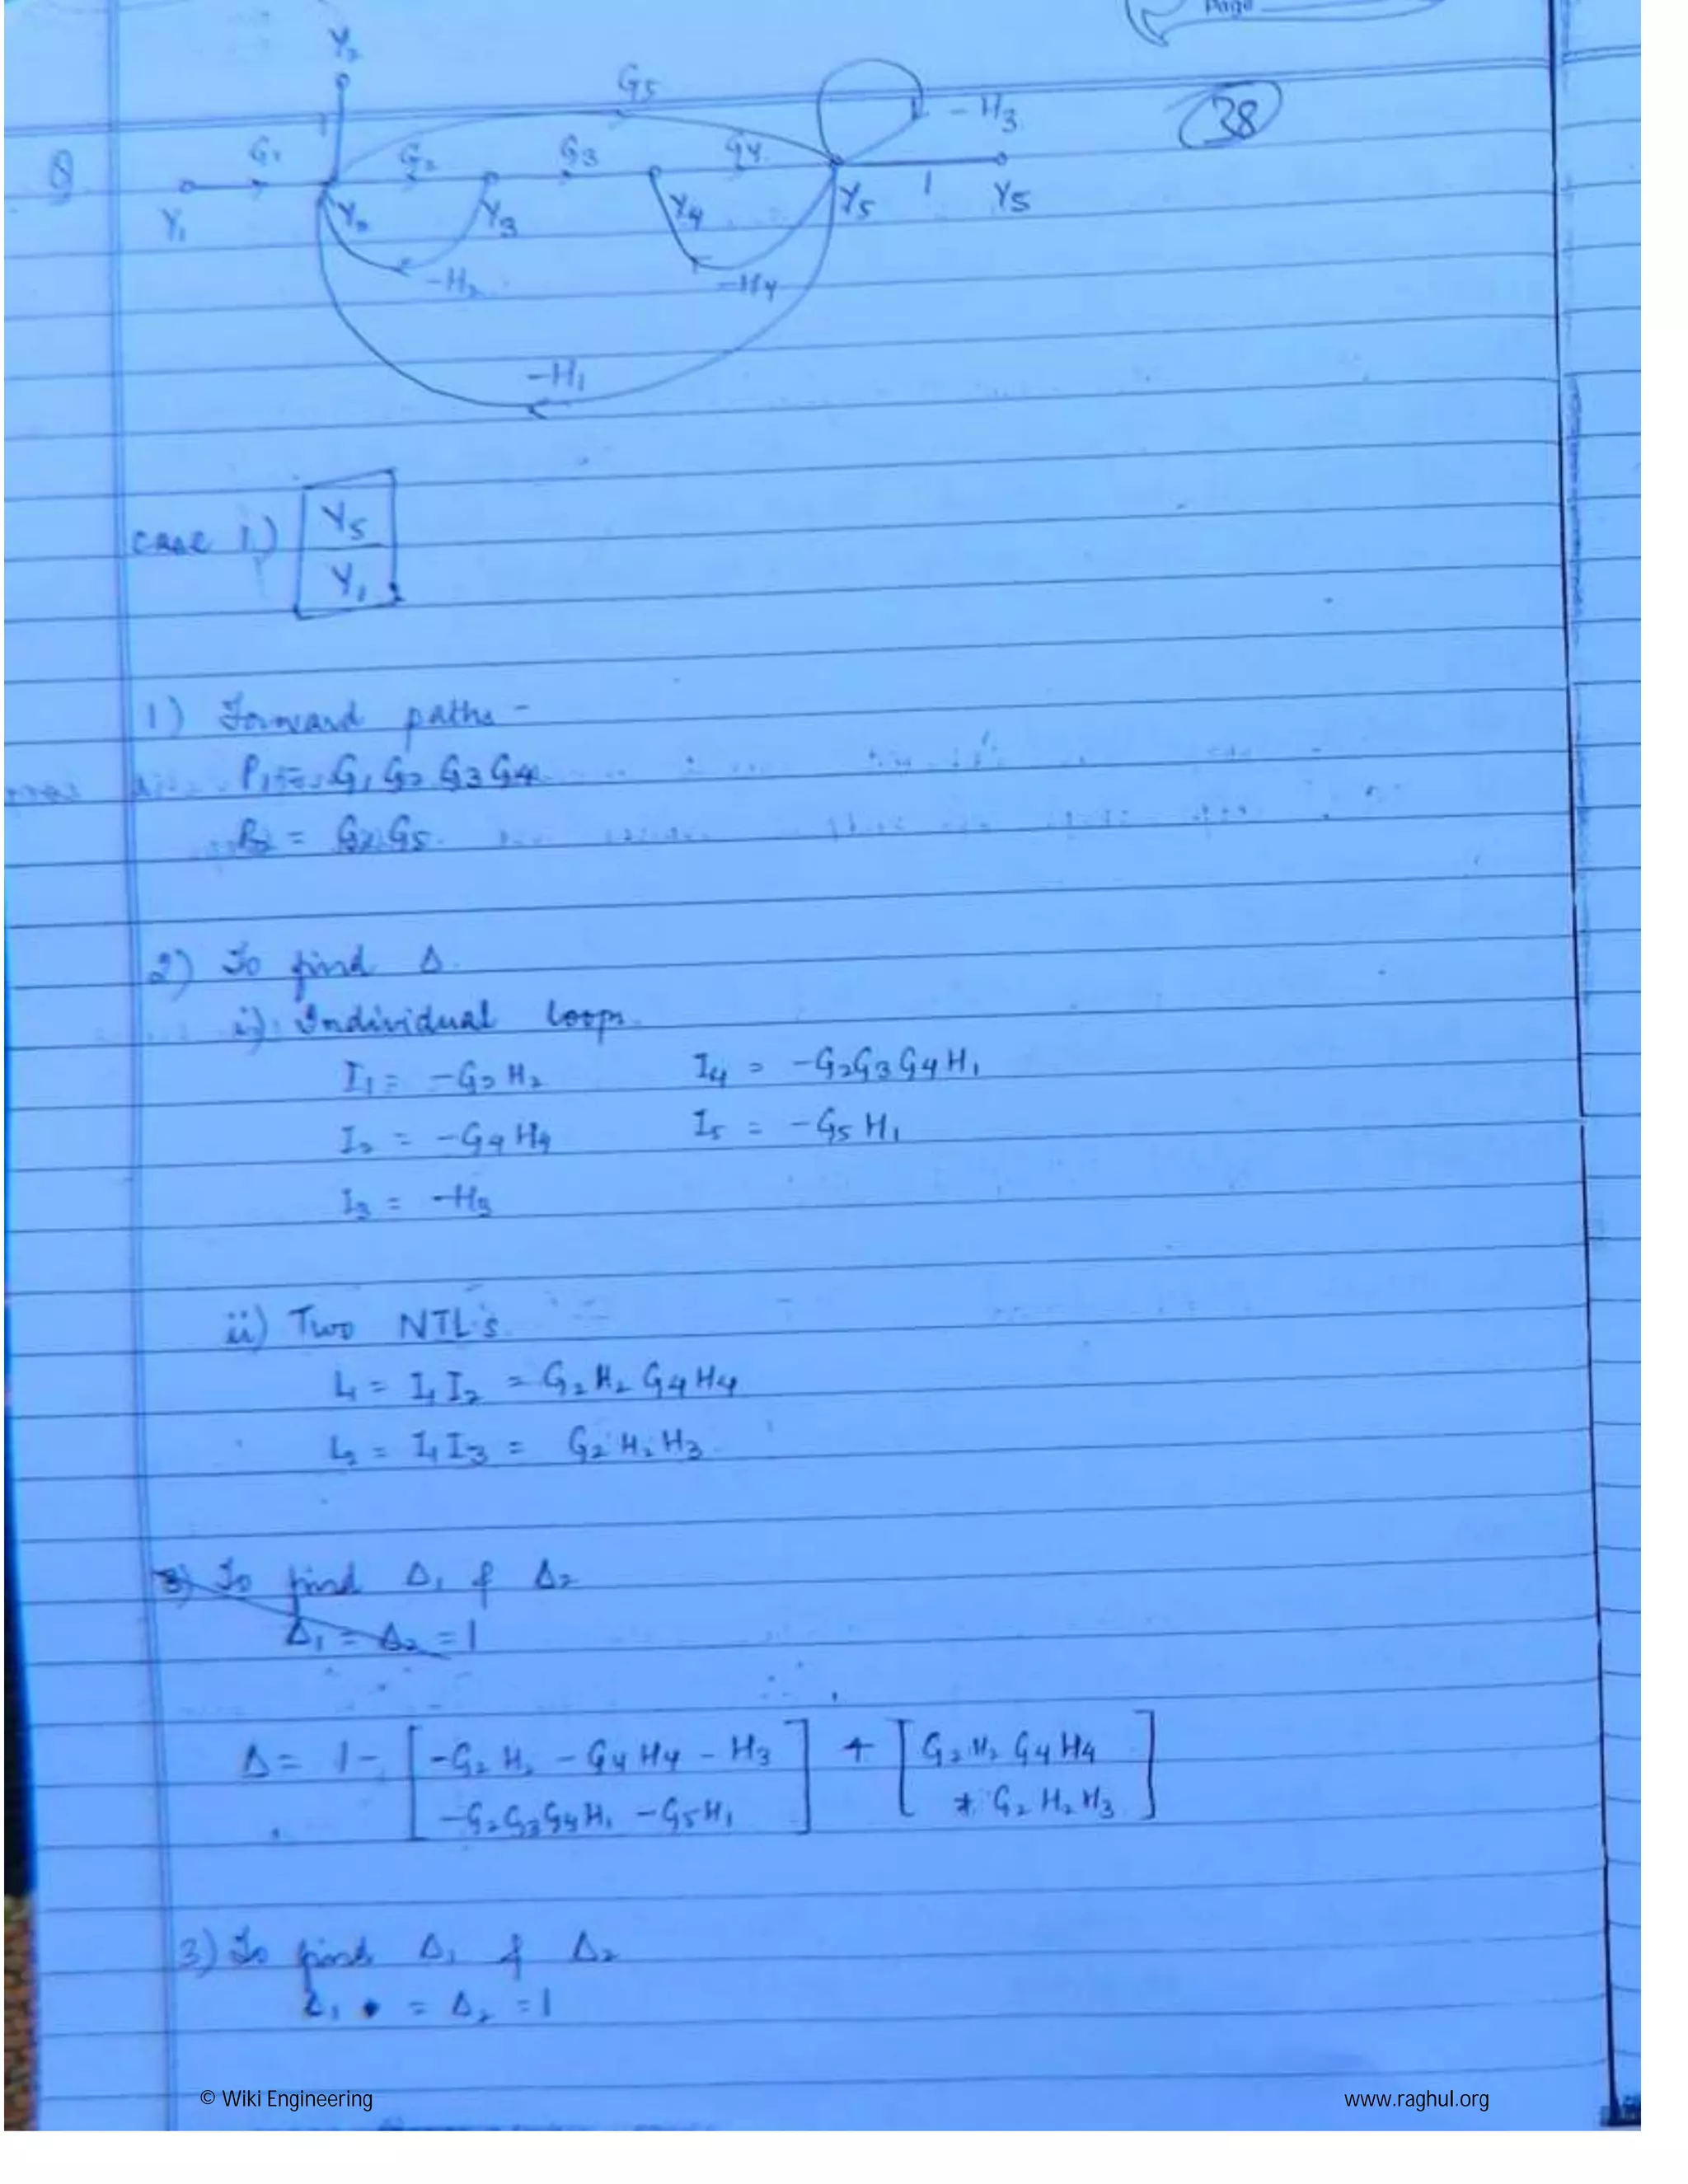 Page
Y₂
G₅
- H₃
38
Q
G₁ G₂ G₃ G₄
Y₁ Y₂ Y₃ Y₄ Y₅ 1 Y₅
-H₂ -H₄
-H₁
case 1.) Y₅
Y₁
1) Forward paths -
P₁ = G₁ G₂ G₃ G₄
P₂ = G₂ G₅
2) To find Δ
i) Individual loops
I₁ = -G₂ H₂ I₄ = -G₂G₃G₄H₁
I₂ = -G₄H₄ I₅ = -G₅ H₁
I₃ = -H₃
ii) Two NTL's
L₁ = I₁ I₂ = G₂ H₂ G₄ H₄
L₂ = I₁ I₃ = G₂ H₂ H₃
3) To find Δ₁ & Δ₂
Δ₁ = Δ₂ = 1
Δ = 1 - [ -G₂ H₂ - G₄ H₄ - H₃ ] + [ G₂ H₂ G₄ H₄
-G₂G₃G₄H₁ - G₅H₁ + G₂ H₂ H₃ ]
3) To find Δ₁ & Δ₂
Δ₁ = Δ₂ = 1
© Wiki Engineering www.raghul.org